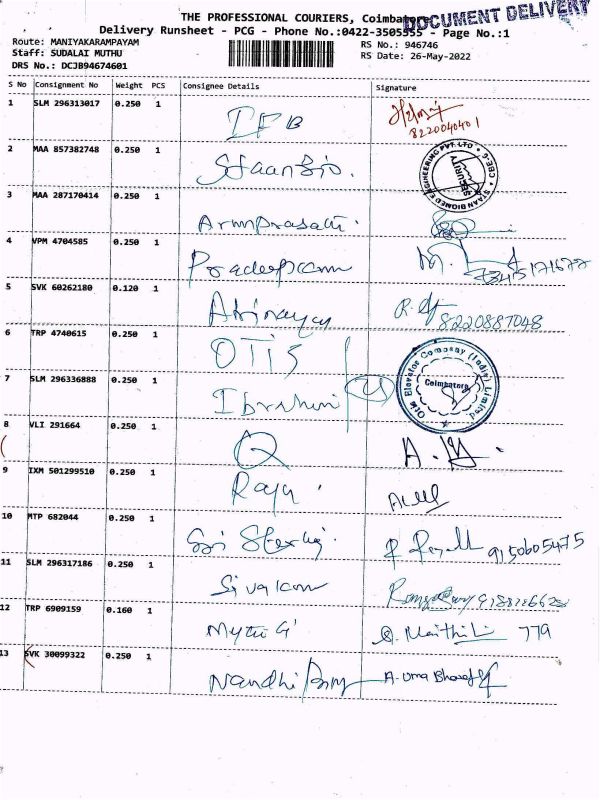 THE PROFESSIONAL COURIERS, Coimbatore
DOCUMENT DELIVERY
Delivery Runsheet - PCG - Phone No.:0422-3505555 - Page No.:1
Route: MANIYAKARAMPAYAM
RS No.: 946746
Staff: SUDALAI MUTHU
RS Date: 26-May-2022
DRS No.: DCJB94674601
S No Consignment No Weight PCS Consignee Details Signature
1 SLM 296313017 0.250 1 IFB
8220040401
2 MAA 857382748 0.250 1 Staan Bio.
STAAN BIOMED ENGINEERING PVT. LTD CBE-6 SECURITY
3 MAA 287170414 0.250 1 Arunprasath.
4 VPM 4704585 0.250 1
5 SVK 60262180 0.120 1 8220887048
6 TRP 4740615 0.250 1 OTIS
Otis Elevator Company (India) Limited Coimbatore
7 SLM 296336888 0.250 1 Ibrahim
8 VLI 291664 0.250 1
9 IXM 501299510 0.250 1 Raju.
10 MTP 682044 0.250 1 9150605475
11 SLM 296317186 0.250 1
12 TRP 6909159 0.160 1 Maithili 779
13 SVK 30099322 0.250 1 A. Uma